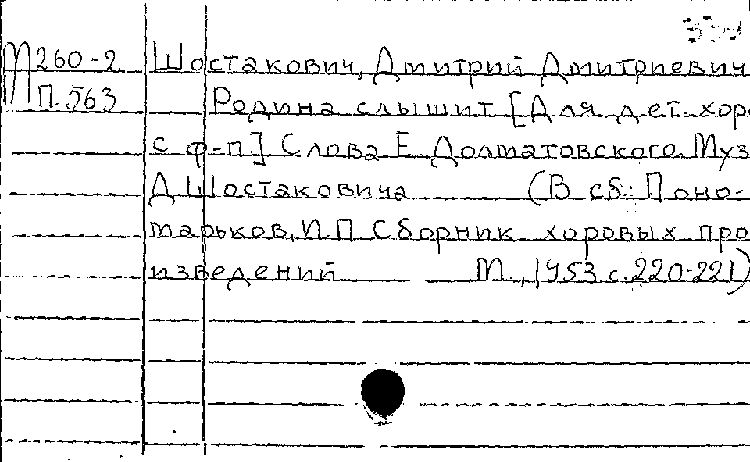 М260-2 Шостакович, Дмитрий Дмитриевич
П.563 Родина слышит [Для дет. хор
с ф-п] Слова Е. Долматовского. Муз
Д. Шостаковича (В сб.: Поно-
марьков, И.П. Сборник хоровых про
изведений М., 1953 с. 220-221)